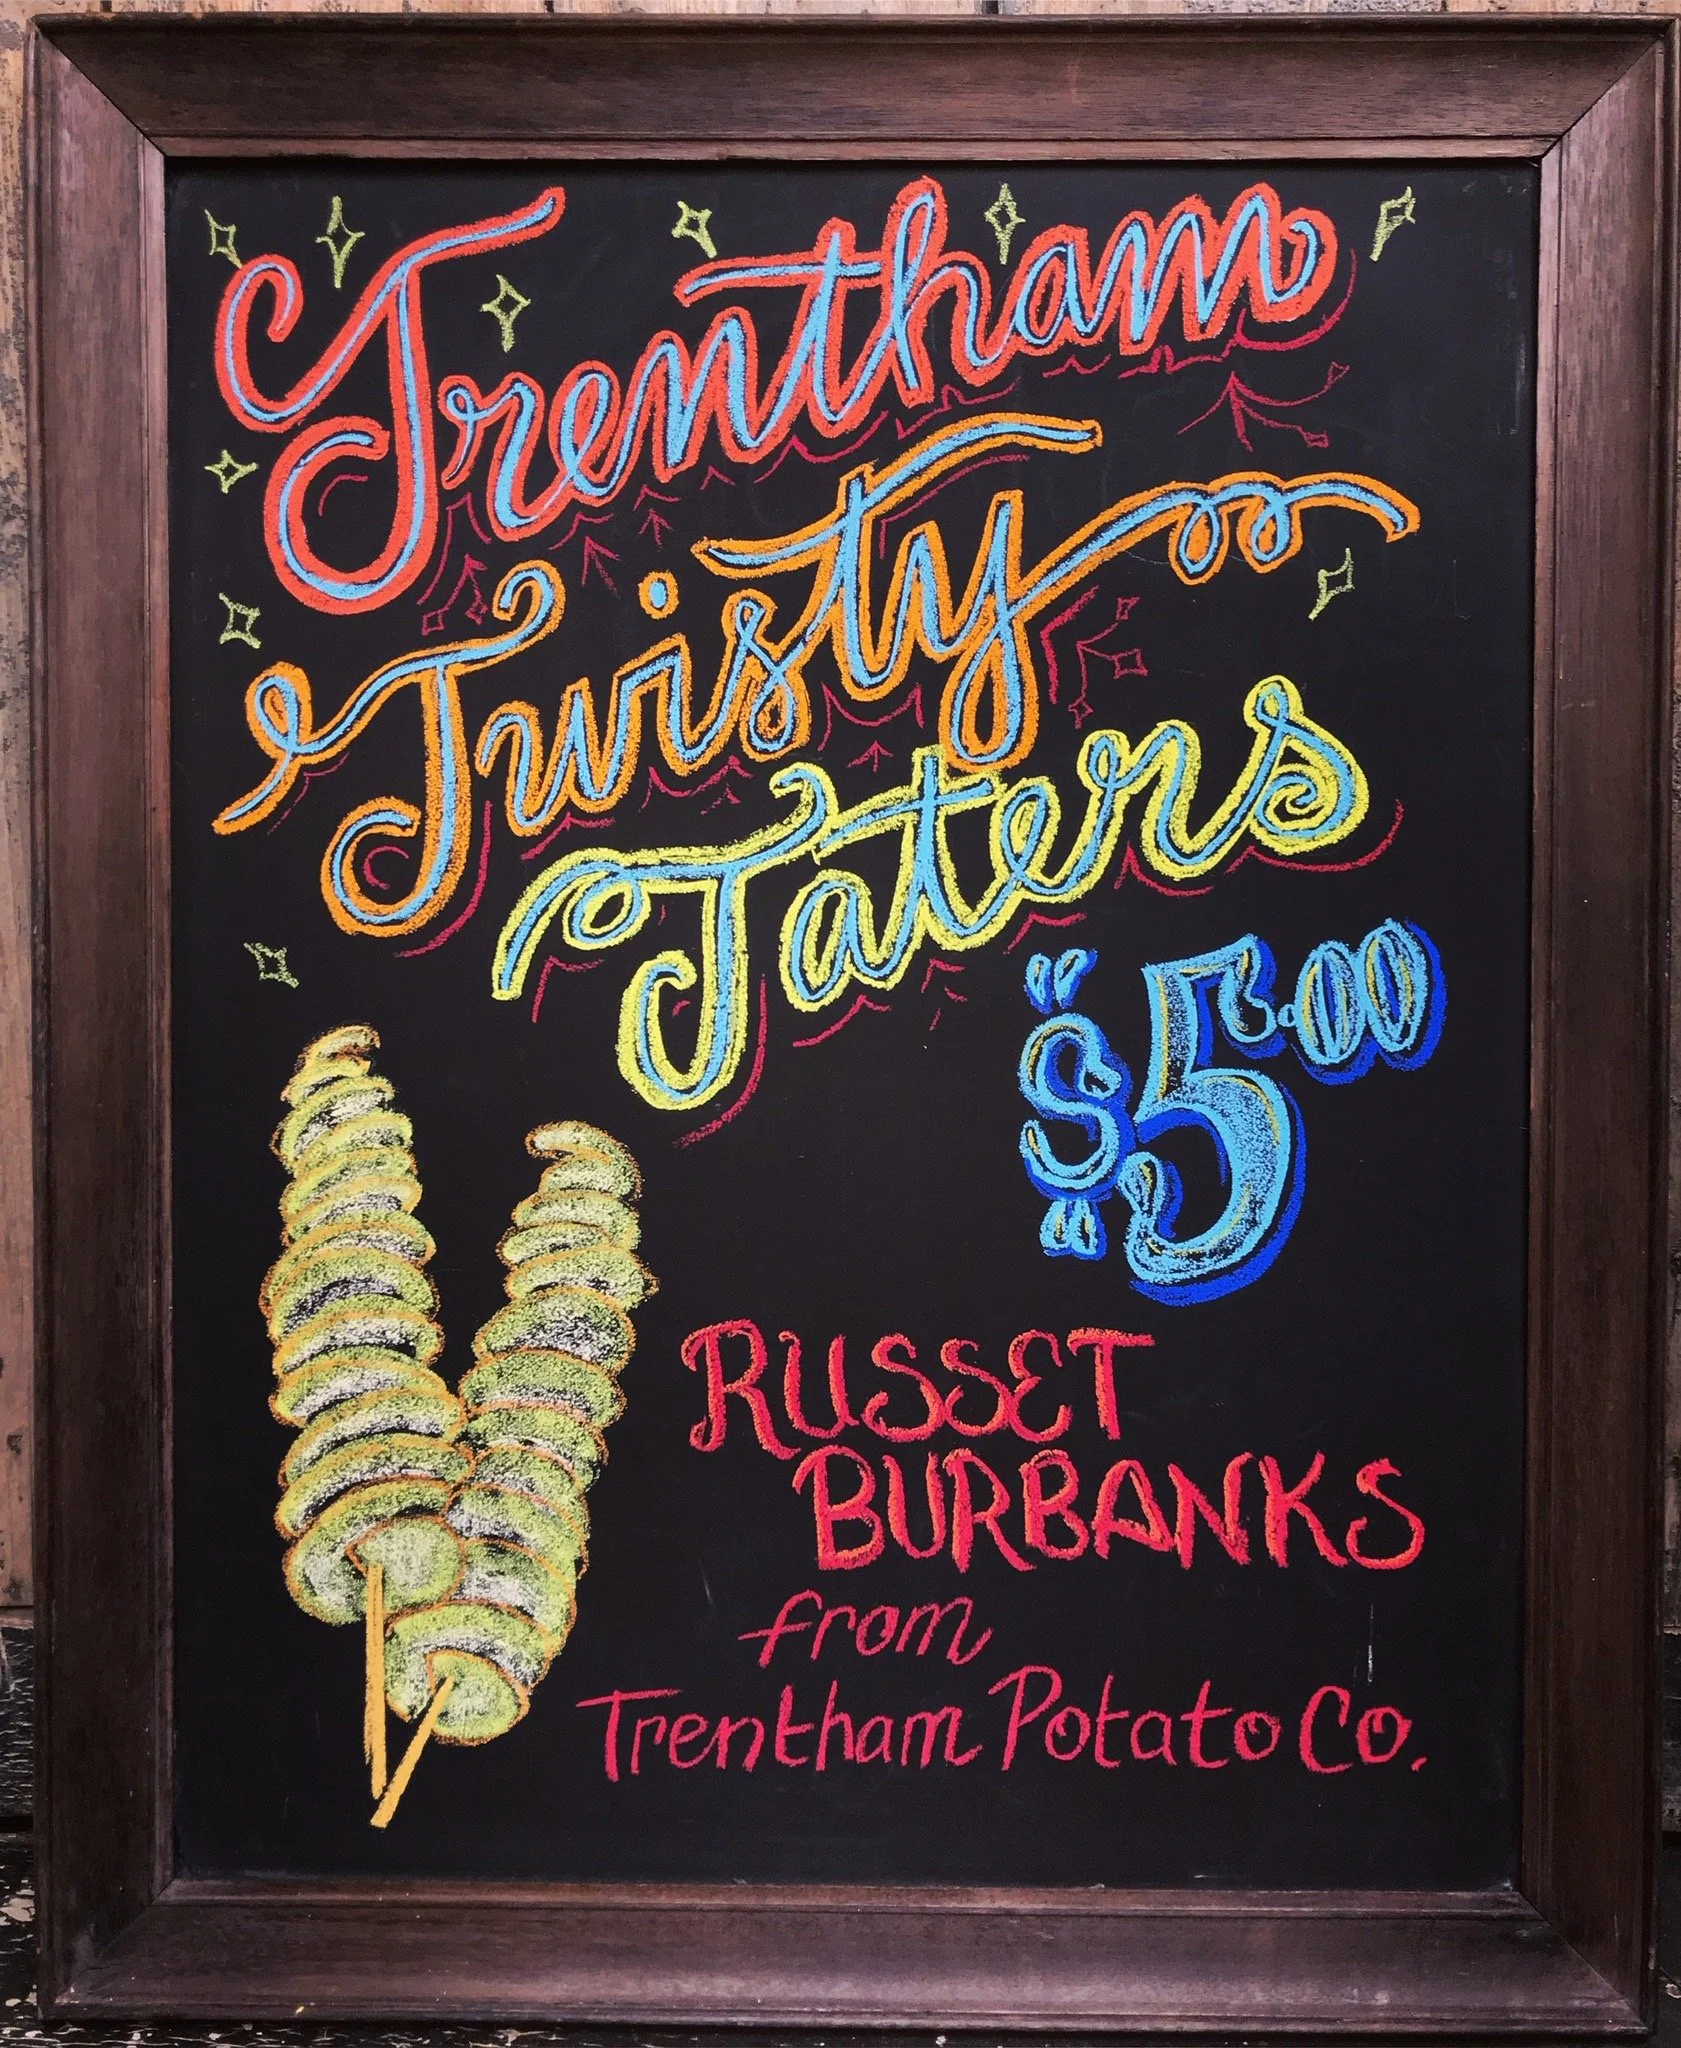 Trentham
Twisty
Taters
$5.00
RUSSET
BURBANKS
from
Trentham Potato Co.